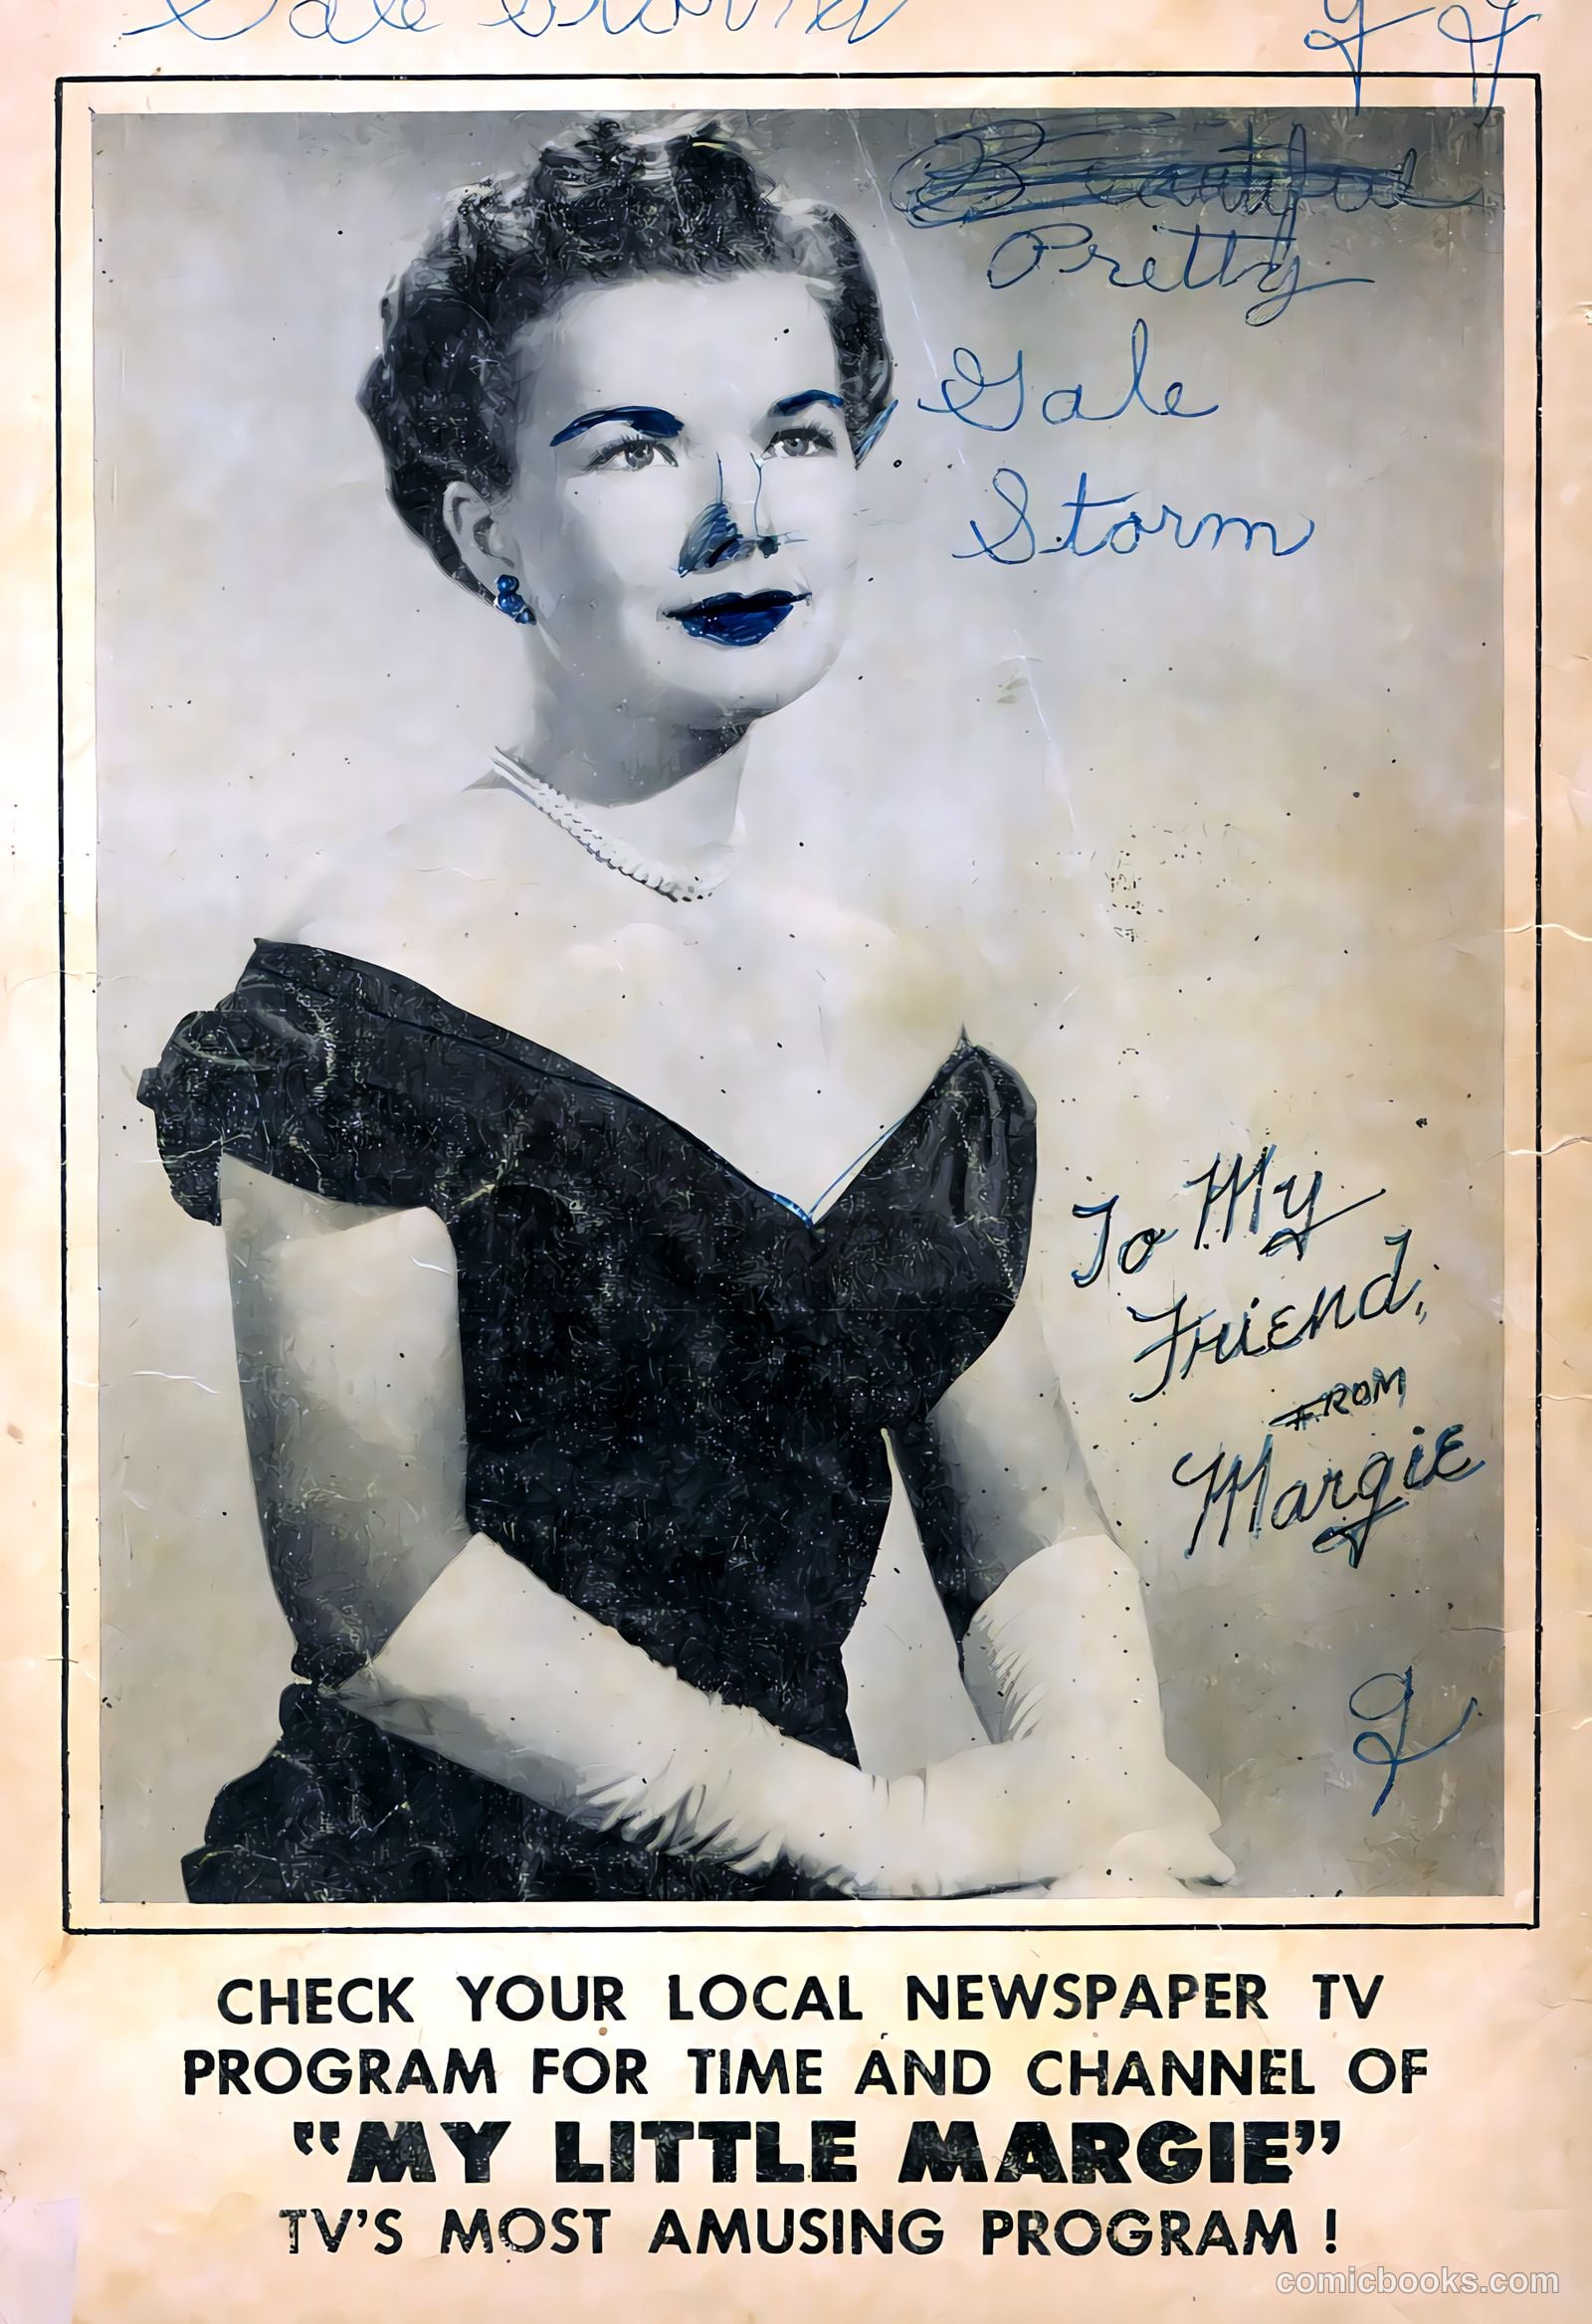 Gale Storm
Pretty
Gale
Storm
To My
Friend,
FROM
Margie
CHECK YOUR LOCAL NEWSPAPER TV
PROGRAM FOR TIME AND CHANNEL OF
“MY LITTLE MARGIE”
TV’S MOST AMUSING PROGRAM!
comicbooks.com